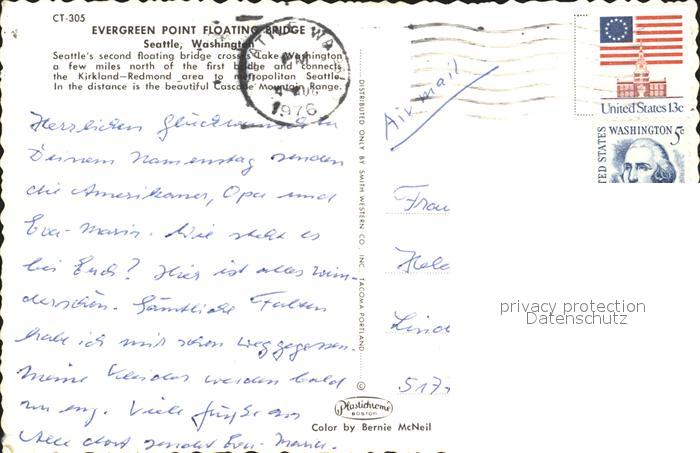 CT-305
EVERGREEN POINT FLOATING BRIDGE
Seattle, Washington
Seattle's second floating bridge crosses Lake Washington
a few miles north of the first bridge and connects
the Kirkland—Redmond area to metropolitan Seattle.
In the distance is the beautiful Cascade Mountain Range.
PM
1976
Herzlichen Glückwunsch zu
Deinem Namenstag senden
die Amerikaner, Opa und
Eva-Maria. Wie steht es
bei Euch? Hier ist alles wun-
derschön. Sämtliche Falten
habe ich mir schon weggegessen.
Meine Kleider werden bald
zu eng. Viele Grüße an
Alle dort sendet Eva-Maria.
DISTRIBUTED ONLY BY SMITH WESTERN CO., INC. TACOMA PORTLAND
©
Plastichrome
BOSTON
Color by Bernie McNeil
Air mail
United States 13c
ED STATES
WASHINGTON 5c
Frau
Hele
Lind
517
privacy protection
Datenschutz